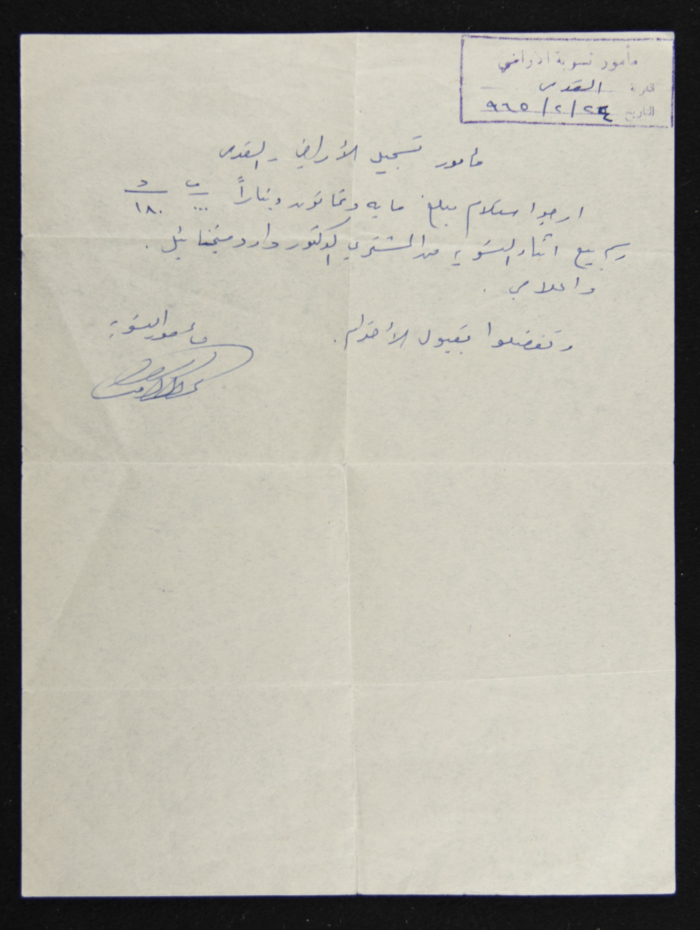 مأمور تسوية اراضي
القدس
التاريخ ٢٤/٢/٩٦٥
مأمور تسجيل الأراضي - القدس
ارجوا استلام مبلغ مايه وثمانون ديناراً ف ... د ١٨٠
رسم بيع اثناء التسوية من المشتري الدكتور داود ميخائيل .
واعلامي .
وتفضلوا بقبول الأحترام .
مأمور التسوية